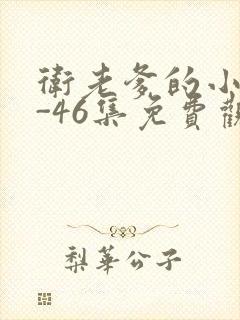 衛老爹的小
-46集免費觀
梨華公子